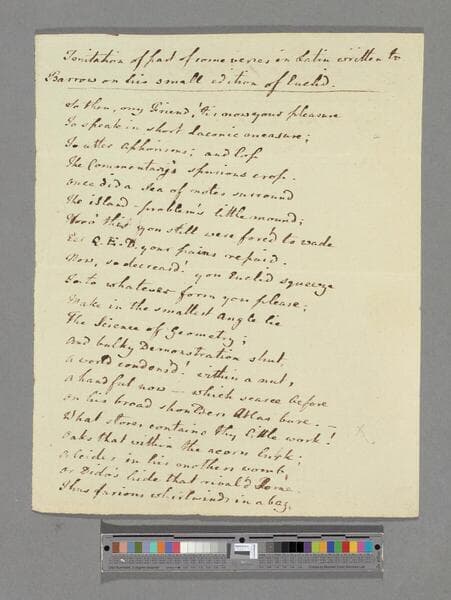 Imitation of part of some verses in Latin written to
Barrow on his small edition of Euclid.
So then, my Friend, 'tis now your pleasure
To speak in short laconic measure;
To utter aphorisms; and lop
The Commentary's spurious crop.
Once did a Sea of notes surround
The island-problem's little mound;
Thro' this you still were forc'd to wade
Ere Q. E. D. your pains repaid.
Now, so decreed! you Euclid squeeze
Into whatever form you please;
Make in the smallest Angle lie
The Science of Geometry;
And bulky Demonstration shut,
A world condens'd! within a nut,
A handful now — which scarce before
On his broad shoulders Atlas bore. —
What stores contains thy little work!
Oaks that within the acorn lurk;
Alcides in his mother's womb,
Or Dido's hide that rival'd Rome.
Thus furious whirlwinds in a bag,